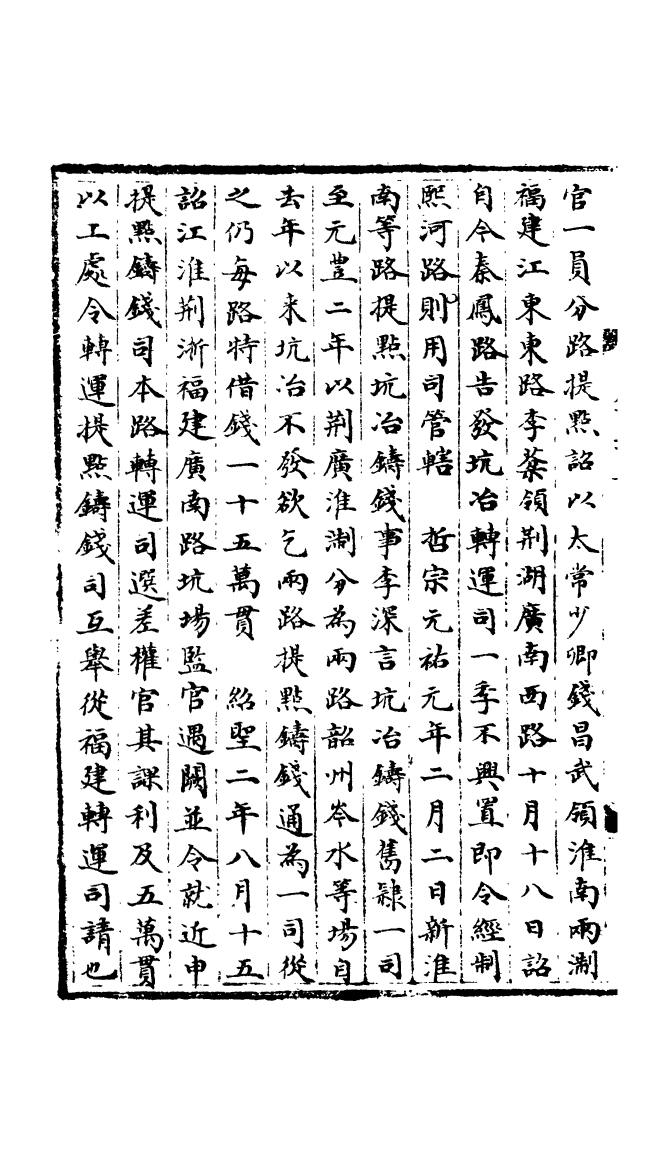 官一員分路提點詔以太常少卿錢昌武領淮南兩淛
福建江東東路李棻領荆湖廣南西路十月十八日詔
自今秦鳳路告發坑冶轉運司一季不興置即令經制
熈河路則用司管轄　哲宗元祐元年二月二日新淮
南等路提點坑冶鑄錢事李深言坑冶鑄錢舊隷一司
至元豊二年以荆廣淮淛分為兩路韶州岑水等場自
去年以来坑冶不發欲乞兩路提點鑄錢通為一司從
之仍每路特借錢一十五萬貫　紹聖二年八月十五
詔江淮荆淅福建廣南路坑場監官遇闕並令就近申
提點鑄錢司本路轉運司選差權官其課利及五萬貫
以工處令轉運提點鑄錢司互舉從福建轉運司請也